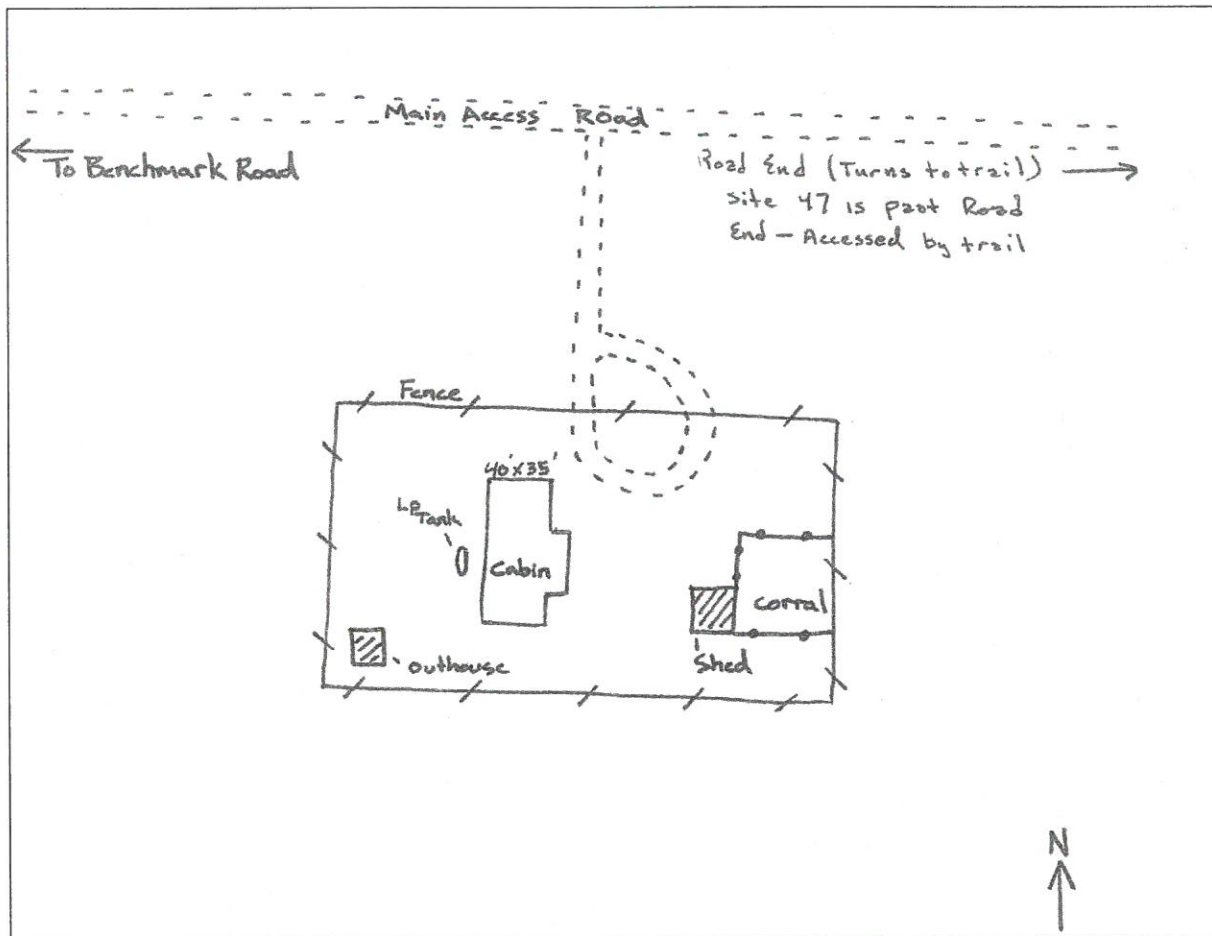 Main Access Road
To Benchmark Road
Road End (Turns to trail)
site 47 is past Road
End - Accessed by trail
Fence
40'x35'
LP Tank
Cabin
corral
outhouse
Shed
N